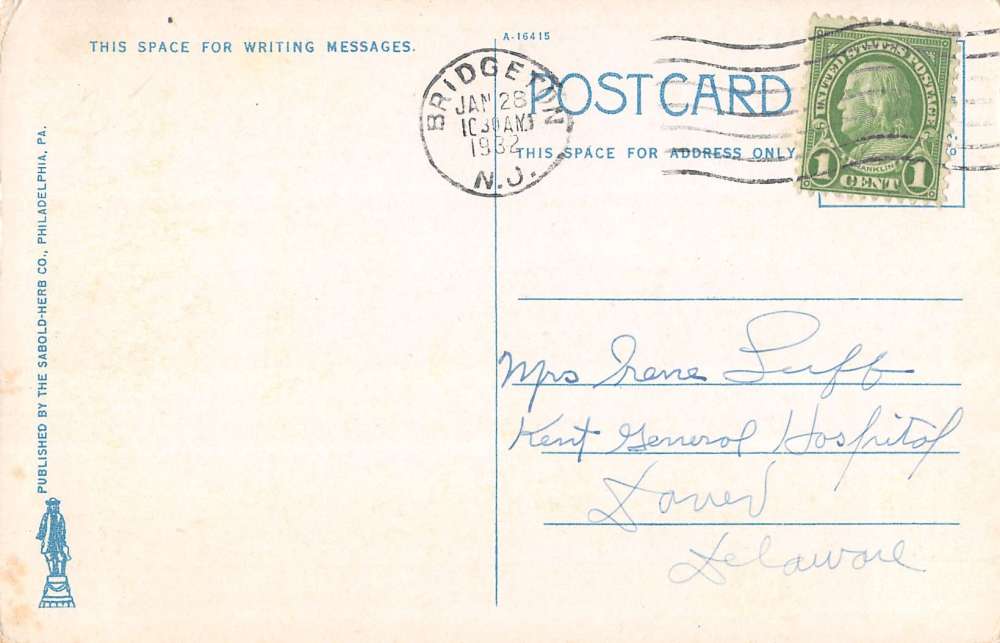 THIS SPACE FOR WRITING MESSAGES.
A-16415
POST CARD
THIS SPACE FOR ADDRESS ONLY
BRIDGETON
JAN 28
10 30 AM
1932
N.J.
UNITED STATES POSTAGE
FRANKLIN
1 CENT 1
Mrs Irene Luff
Kent General Hospital
Dover
Delaware
PUBLISHED BY THE SABOLD-HERB CO., PHILADELPHIA, PA.